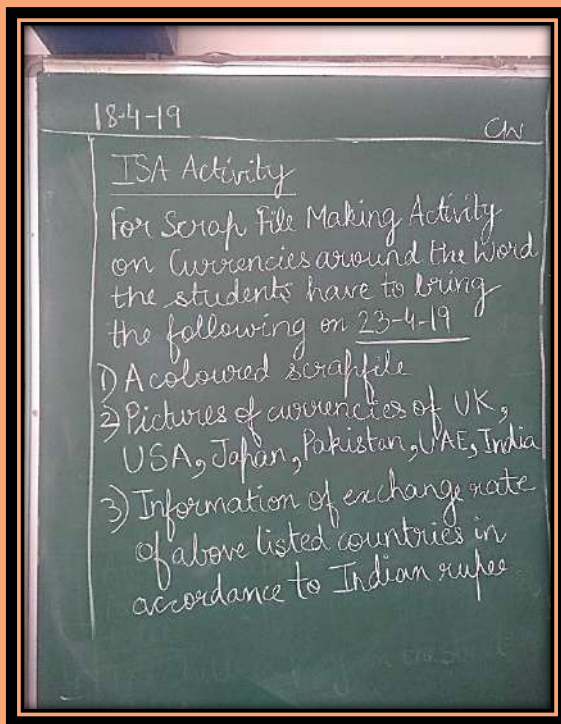 18-4-19
CW
ISA Activity
For Scrap File Making Activity
on Currencies around the Word
the students have to bring
the following on 23-4-19
1) A coloured scrapfile
2) Pictures of currencies of UK,
USA, Japan, Pakistan, UAE, India
3) Information of exchange rate
of above listed countries in
accordance to Indian rupee